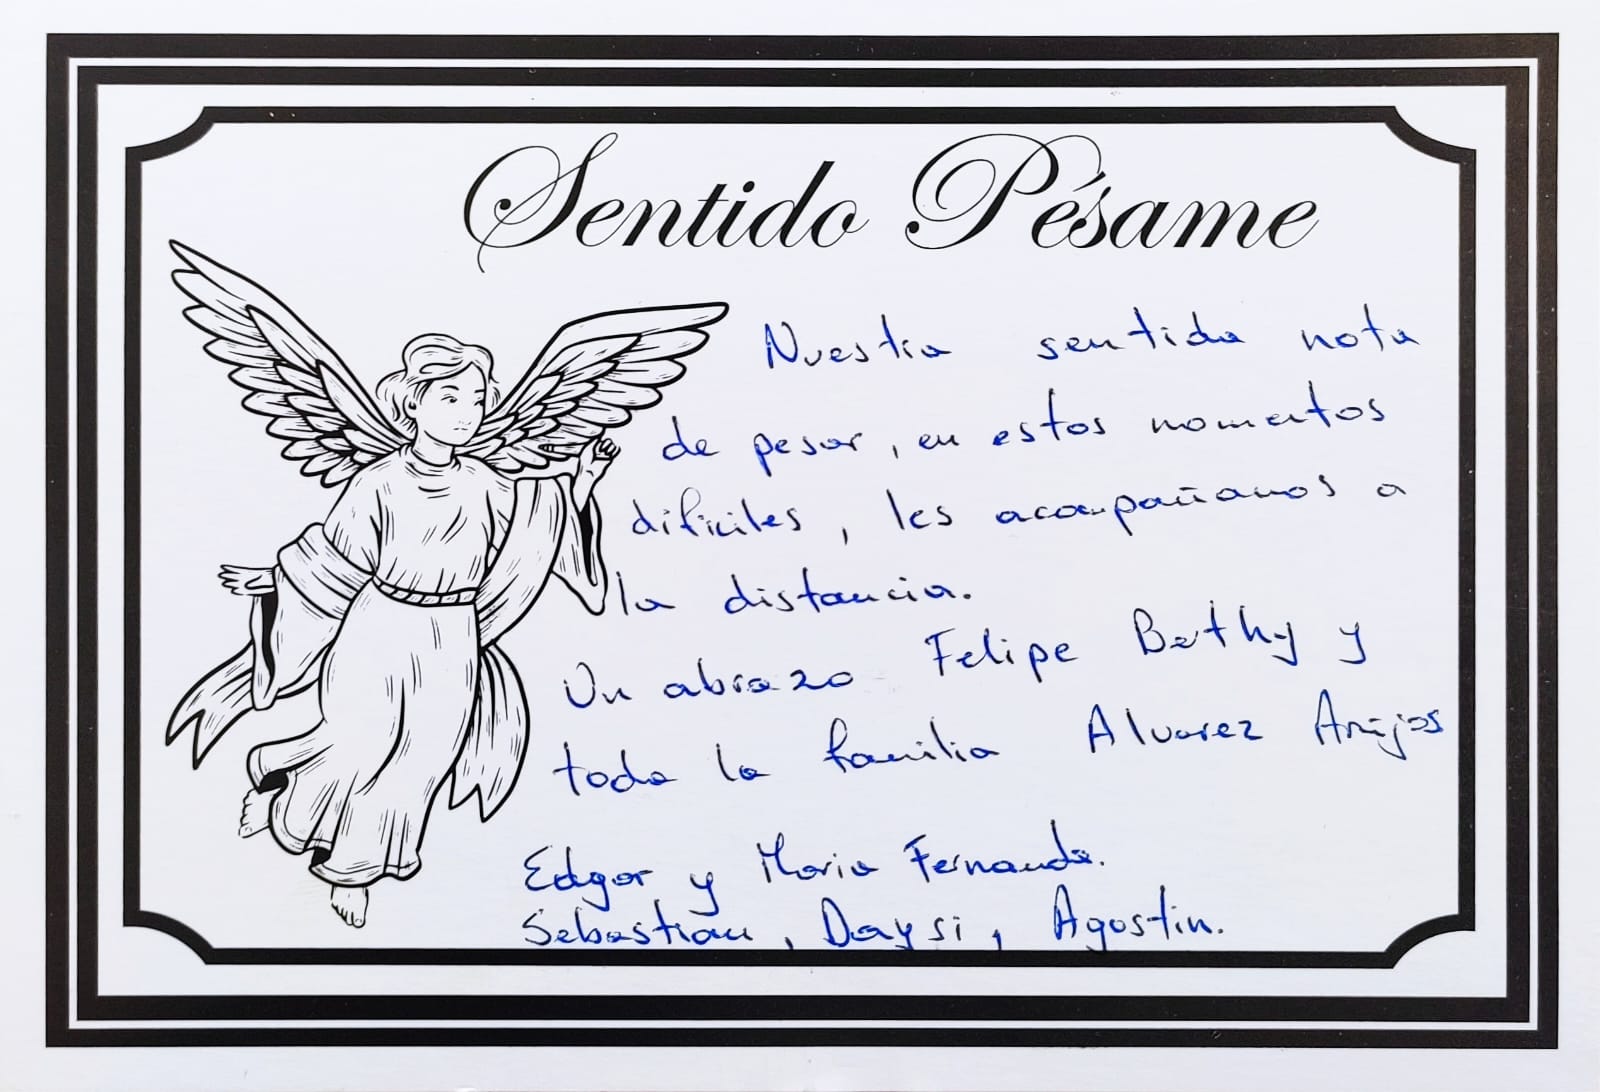 Sentido Pésame
Nuestra sentida nota
de pesar, en estos momentos
dificiles, les acompañamos a
la distancia.
Un abrazo Felipe Bethy y
toda la familia Alvarez
Edgar y Maria Fernanda.
Sebastian, Daysi, Agostin.